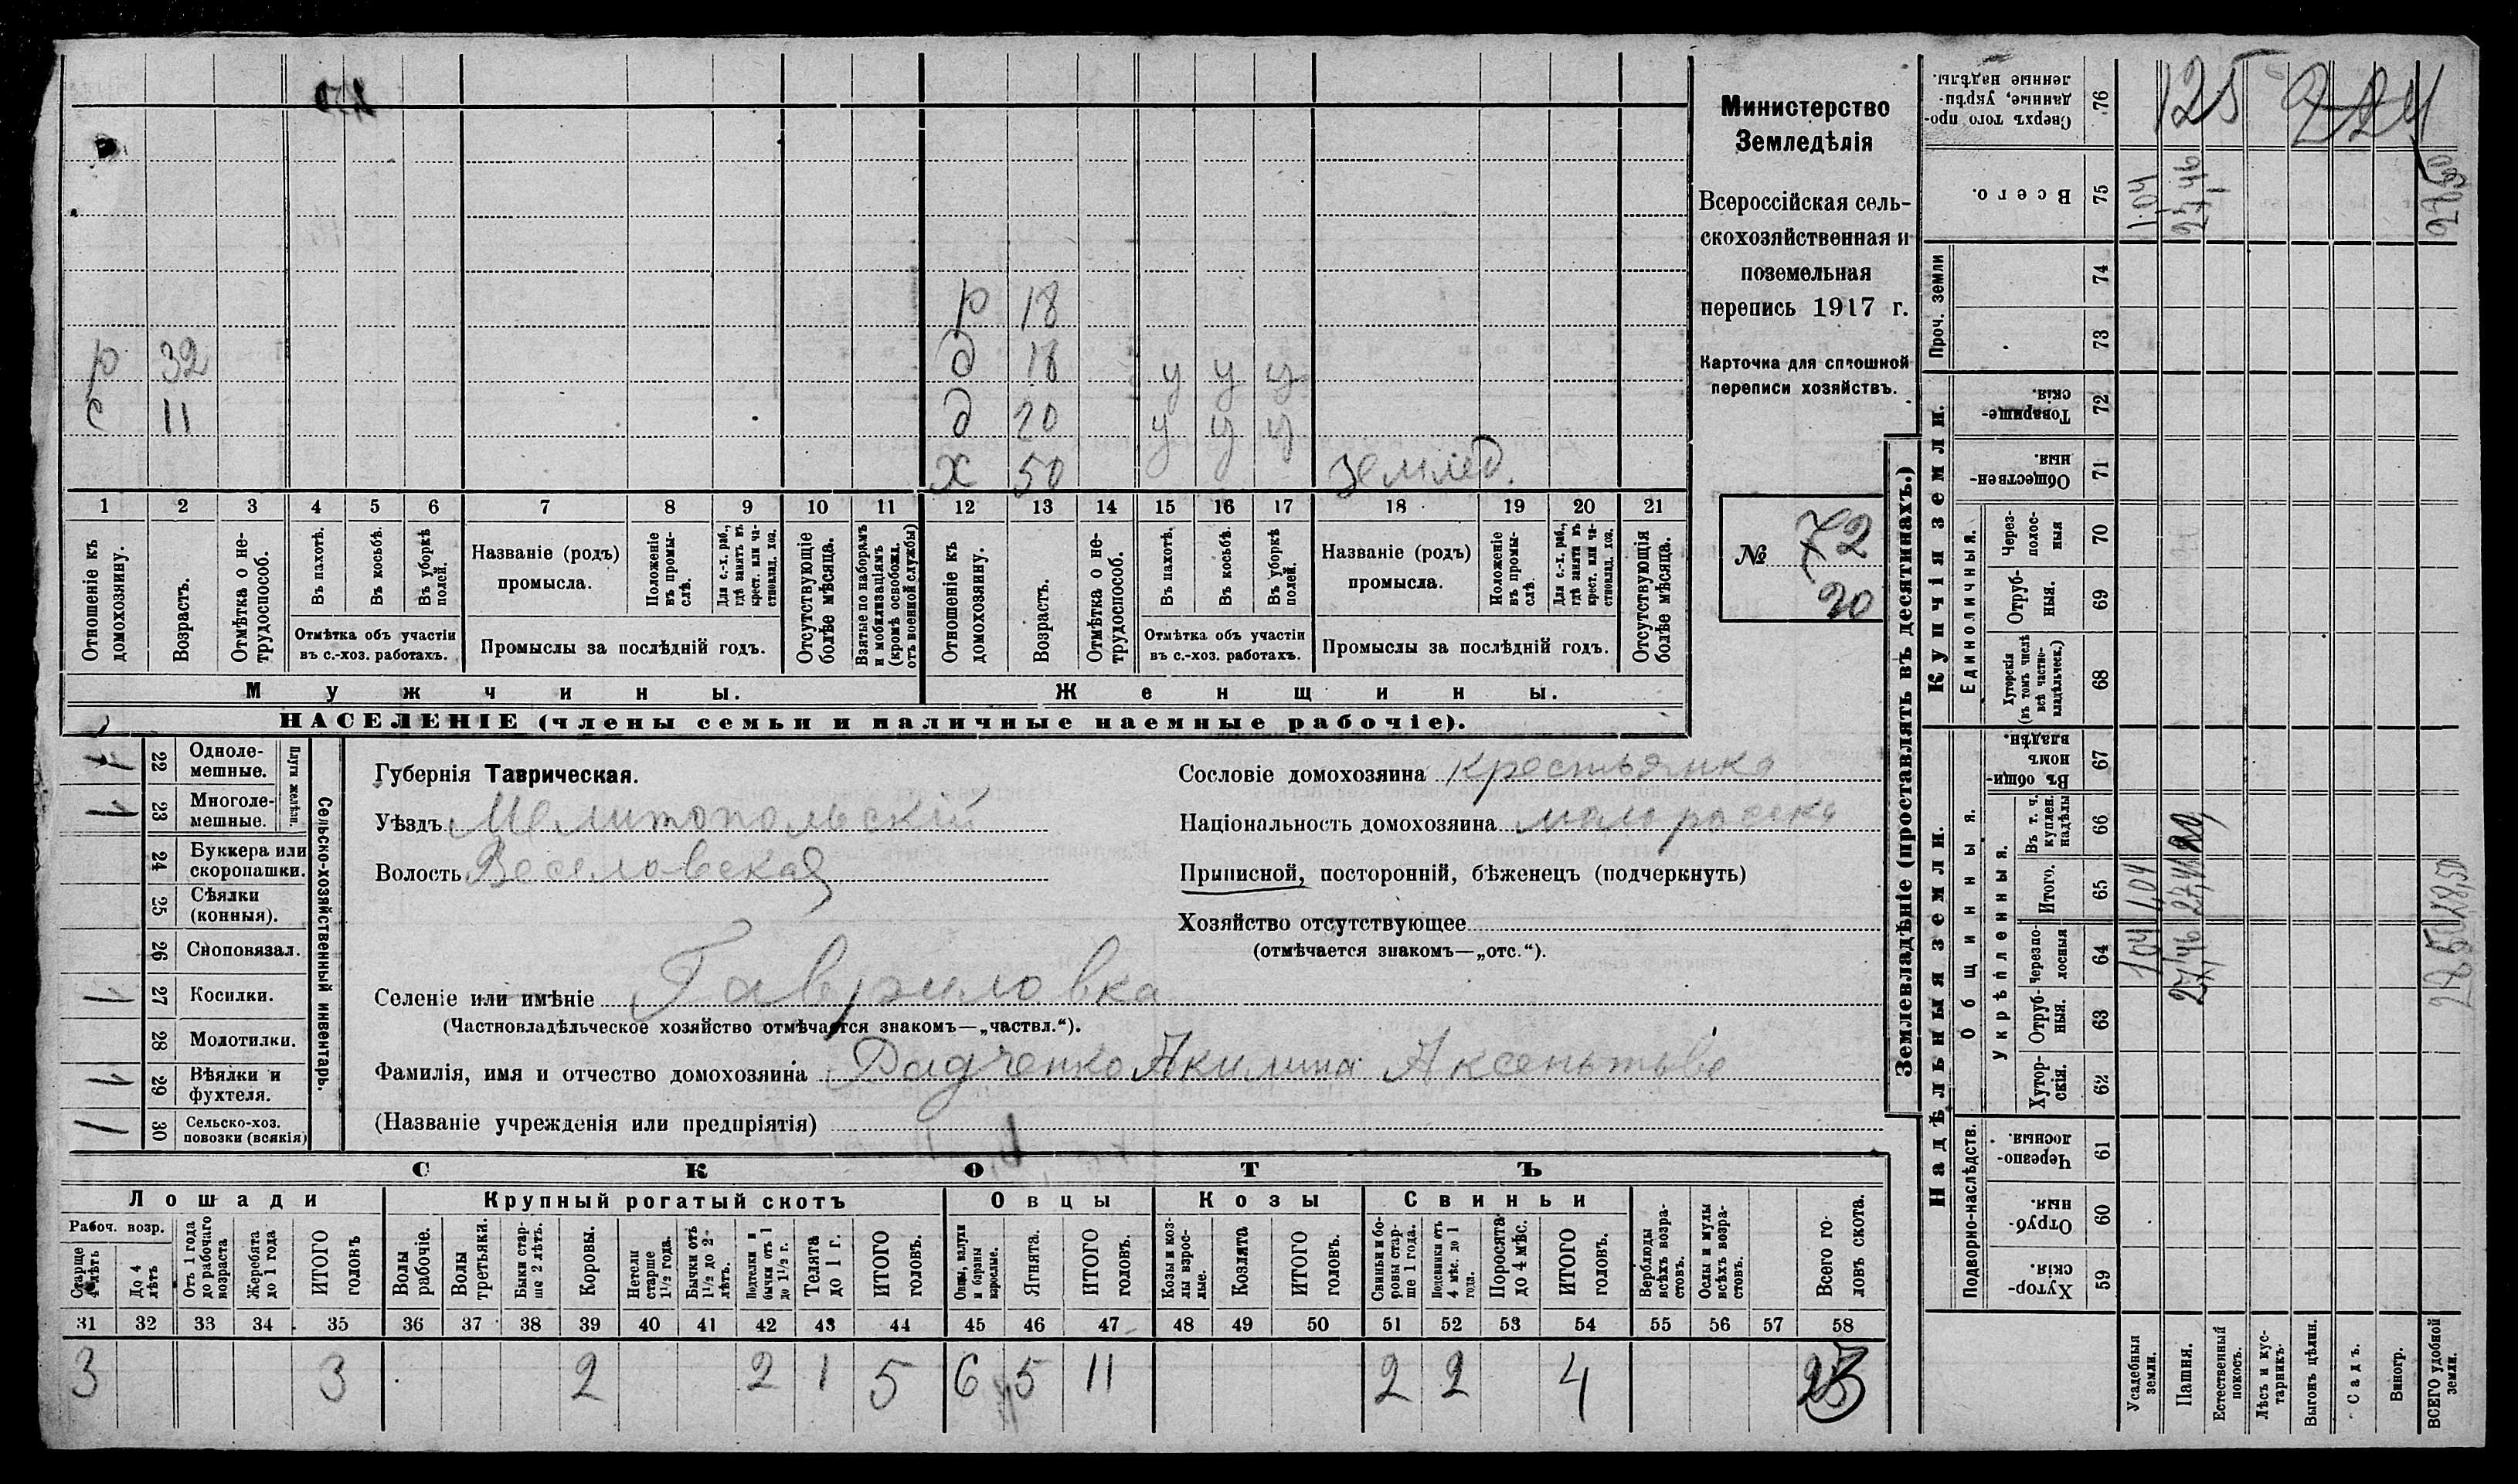 р 18
р 32 д 18 у у у
с 11 д 20 у у у
х 50 землед.
1 2 3 4 5 6 7 8 9 10 11 12 13 14 15 16 17 18 19 20 21
Отношеніе къ домохозяину.
Возрастъ.
Отмѣтка о не-трудоспособ.
Въ пахотѣ.
Въ косьбѣ.
Въ уборкѣ полей.
Отмѣтка объ участіи
въ с.-хоз. работахъ.
Названіе (родъ)
промысла.
Положеніе въ промы-слѣ.
Для с.-х. раб., гдѣ занятъ въ крест. или ча-стновлад. хоз.
Промыслы за послѣдній годъ.
Отсутствующіе болѣе мѣсяца.
Взятые по наборамъ и мобилизаціямъ (кромѣ освобожд. отъ военной службы)
Отношеніе къ домохозяину.
Возрастъ.
Отмѣтка о не-трудоспособ.
Въ пахотѣ.
Въ косьбѣ.
Въ уборкѣ полей.
Отмѣтка объ участіи
въ с.-хоз. работахъ.
Названіе (родъ)
промысла.
Положеніе въ промы-слѣ.
Для с.-х. раб., гдѣ занятъ въ крест. или ча-стновлад. хоз.
Промыслы за послѣдній годъ.
Отсутствующія болѣе мѣсяца.
Мужчины.
Женщины.
НАСЕЛЕНІЕ (члены семьи и наличные наемные рабочіе).
Министерство
Земледѣлія
Всероссійская сель-
скохозяйственная и
поземельная
перепись 1917 г.
Карточка для сплошной
переписи хозяйствъ.
№ 72
20
22 Одноле-мешные. 1
23 Многоле-мешные. 1
Плуги желѣзн.
24 Буккера или скоропашки.
25 Сѣялки (конныя).
26 Сноповязал.
27 Косилки. 1
28 Молотилки.
29 Вѣялки и фухтеля. 1
30 Сельско-хоз. повозки (всякія) 1
Сельско-хозяйственный инвентарь.
Губернія Таврическая.
Уѣздъ Мелитопольскій
Волость Веселовская
Сословіе домохозяина крестьянка
Національность домохозяина малоросска
Приписной, посторонній, бѣженецъ (подчеркнуть)
Хозяйство отсутствующее
(отмѣчается знакомъ—„отс.“).
Селеніе или имѣніе Гавриловка
(Частновладѣльческое хозяйство отмѣчается знакомъ—„частвл.“).
Фамилія, имя и отчество домохозяина Дадченко Акилина Аксентьева
(Названіе учрежденія или предпріятія)
СКОТЪ
Лошади
Крупный рогатый скотъ
Овцы
Козы
Свиньи
Рабоч. возр.
Старше 4 лѣтъ
До 4 лѣтъ
Отъ 1 года до рабочаго возраста
Жеребята до 1 года
ИТОГО головъ
Волы рабочіе.
Волы третьяки.
Быки стар-ше 2 лѣтъ.
Коровы.
Нетели старше 1½ года.
Бычки отъ 1½ до 2-лѣтъ.
Подтелки и бычки отъ 1 до 1½ г.
Телята до 1 г.
ИТОГО головъ.
Овцы, валухи и бараны взрослые.
Ягнята.
ИТОГО головъ.
Козы и коз-лы взрос-лые.
Козлята
ИТОГО головъ.
Свиньи и бо-ровы стар-ше 1 года.
Подсвинки отъ 4 мѣс. до 1 года.
Поросята до 4 мѣс.
ИТОГО головъ.
Верблюды всѣхъ возра-стовъ.
Ослы и мулы всѣхъ возра-стовъ.
Всего го-ловъ скота.
31 32 33 34 35 36 37 38 39 40 41 42 43 44 45 46 47 48 49 50 51 52 53 54 55 56 57 58
3 3 2 2 1 5 6 5 11 2 2 4 23
Землевладѣніе (проставлять въ десятинахъ.)
Надѣльныя земли.
Купчія земли.
Проч. земли
Подворно-наслѣдств.
Общинныя.
Укрѣпленныя.
Единоличныя.
76 Сверхъ того про-данные, укрѣп-ленные надѣлы. 125 224
75 Всего. 1.04 27,46 28,50
74
73
72 Товарище-скія.
71 Обществен-ныя.
70 Через-полос-ныя
69 Отруб-ныя.
68 Хуторскія (въ томъ числѣ всѣ частно-владѣльческ.)
67 Въ общин-номъ владѣн.
66 Въ т. ч. куплен. надѣлы
65 Итого. 1,04 27,46 28,50
64 Черезпо-лосныя 1,04 27,46
63 Отруб-ныя.
62 Хутор-скія.
61 Черезпо-лосныя.
60 Отруб-ныя.
59 Хутор-скія.
Усадебныя земли.
Пашня.
Естественный покосъ.
Лѣсъ и кус-тарникъ.
Выгонъ цѣлин.
Садъ.
Виногр.
ВСЕГО удобной земли.